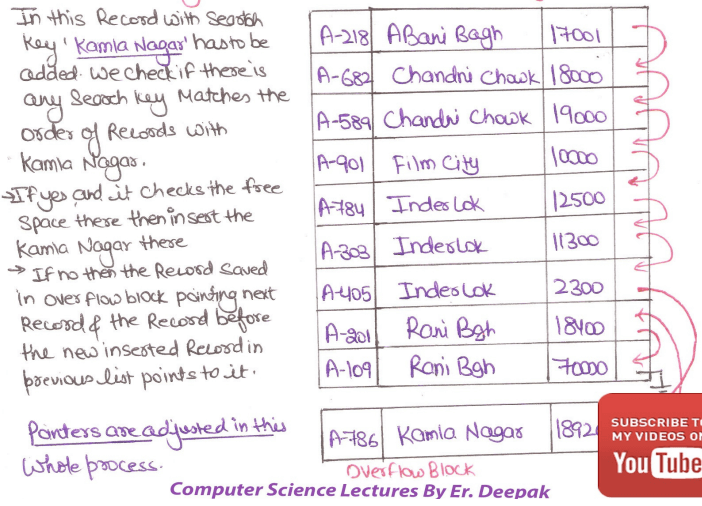 In this Record with Search
Key 'Kamla Nagar' has to be
added. We check if there is
any Search key Matches the
order of Records with
Kamla Nagar.
→If yes and it checks the free
space there then insert the
Kamla Nagar there
→ If no then the Record saved
in overflow block pointing next
Record & the Record before
the new inserted Record in
previous list points to it.
Pointers are adjusted in this
whole process.
A-218 ABani Bagh 17001
A-682 Chandni Chowk 18000
A-589 Chandni Chowk 19000
A-901 Film City 10000
A-784 Inderlok 12500
A-303 Inderlok 11300
A-405 Inderlok 2300
A-201 Rani Bgh 18400
A-109 Rani Bgh 70000
A-786 Kamla Nagar 1892
Overflow Block
SUBSCRIBE TO
MY VIDEOS ON
YouTube
Computer Science Lectures By Er. Deepak